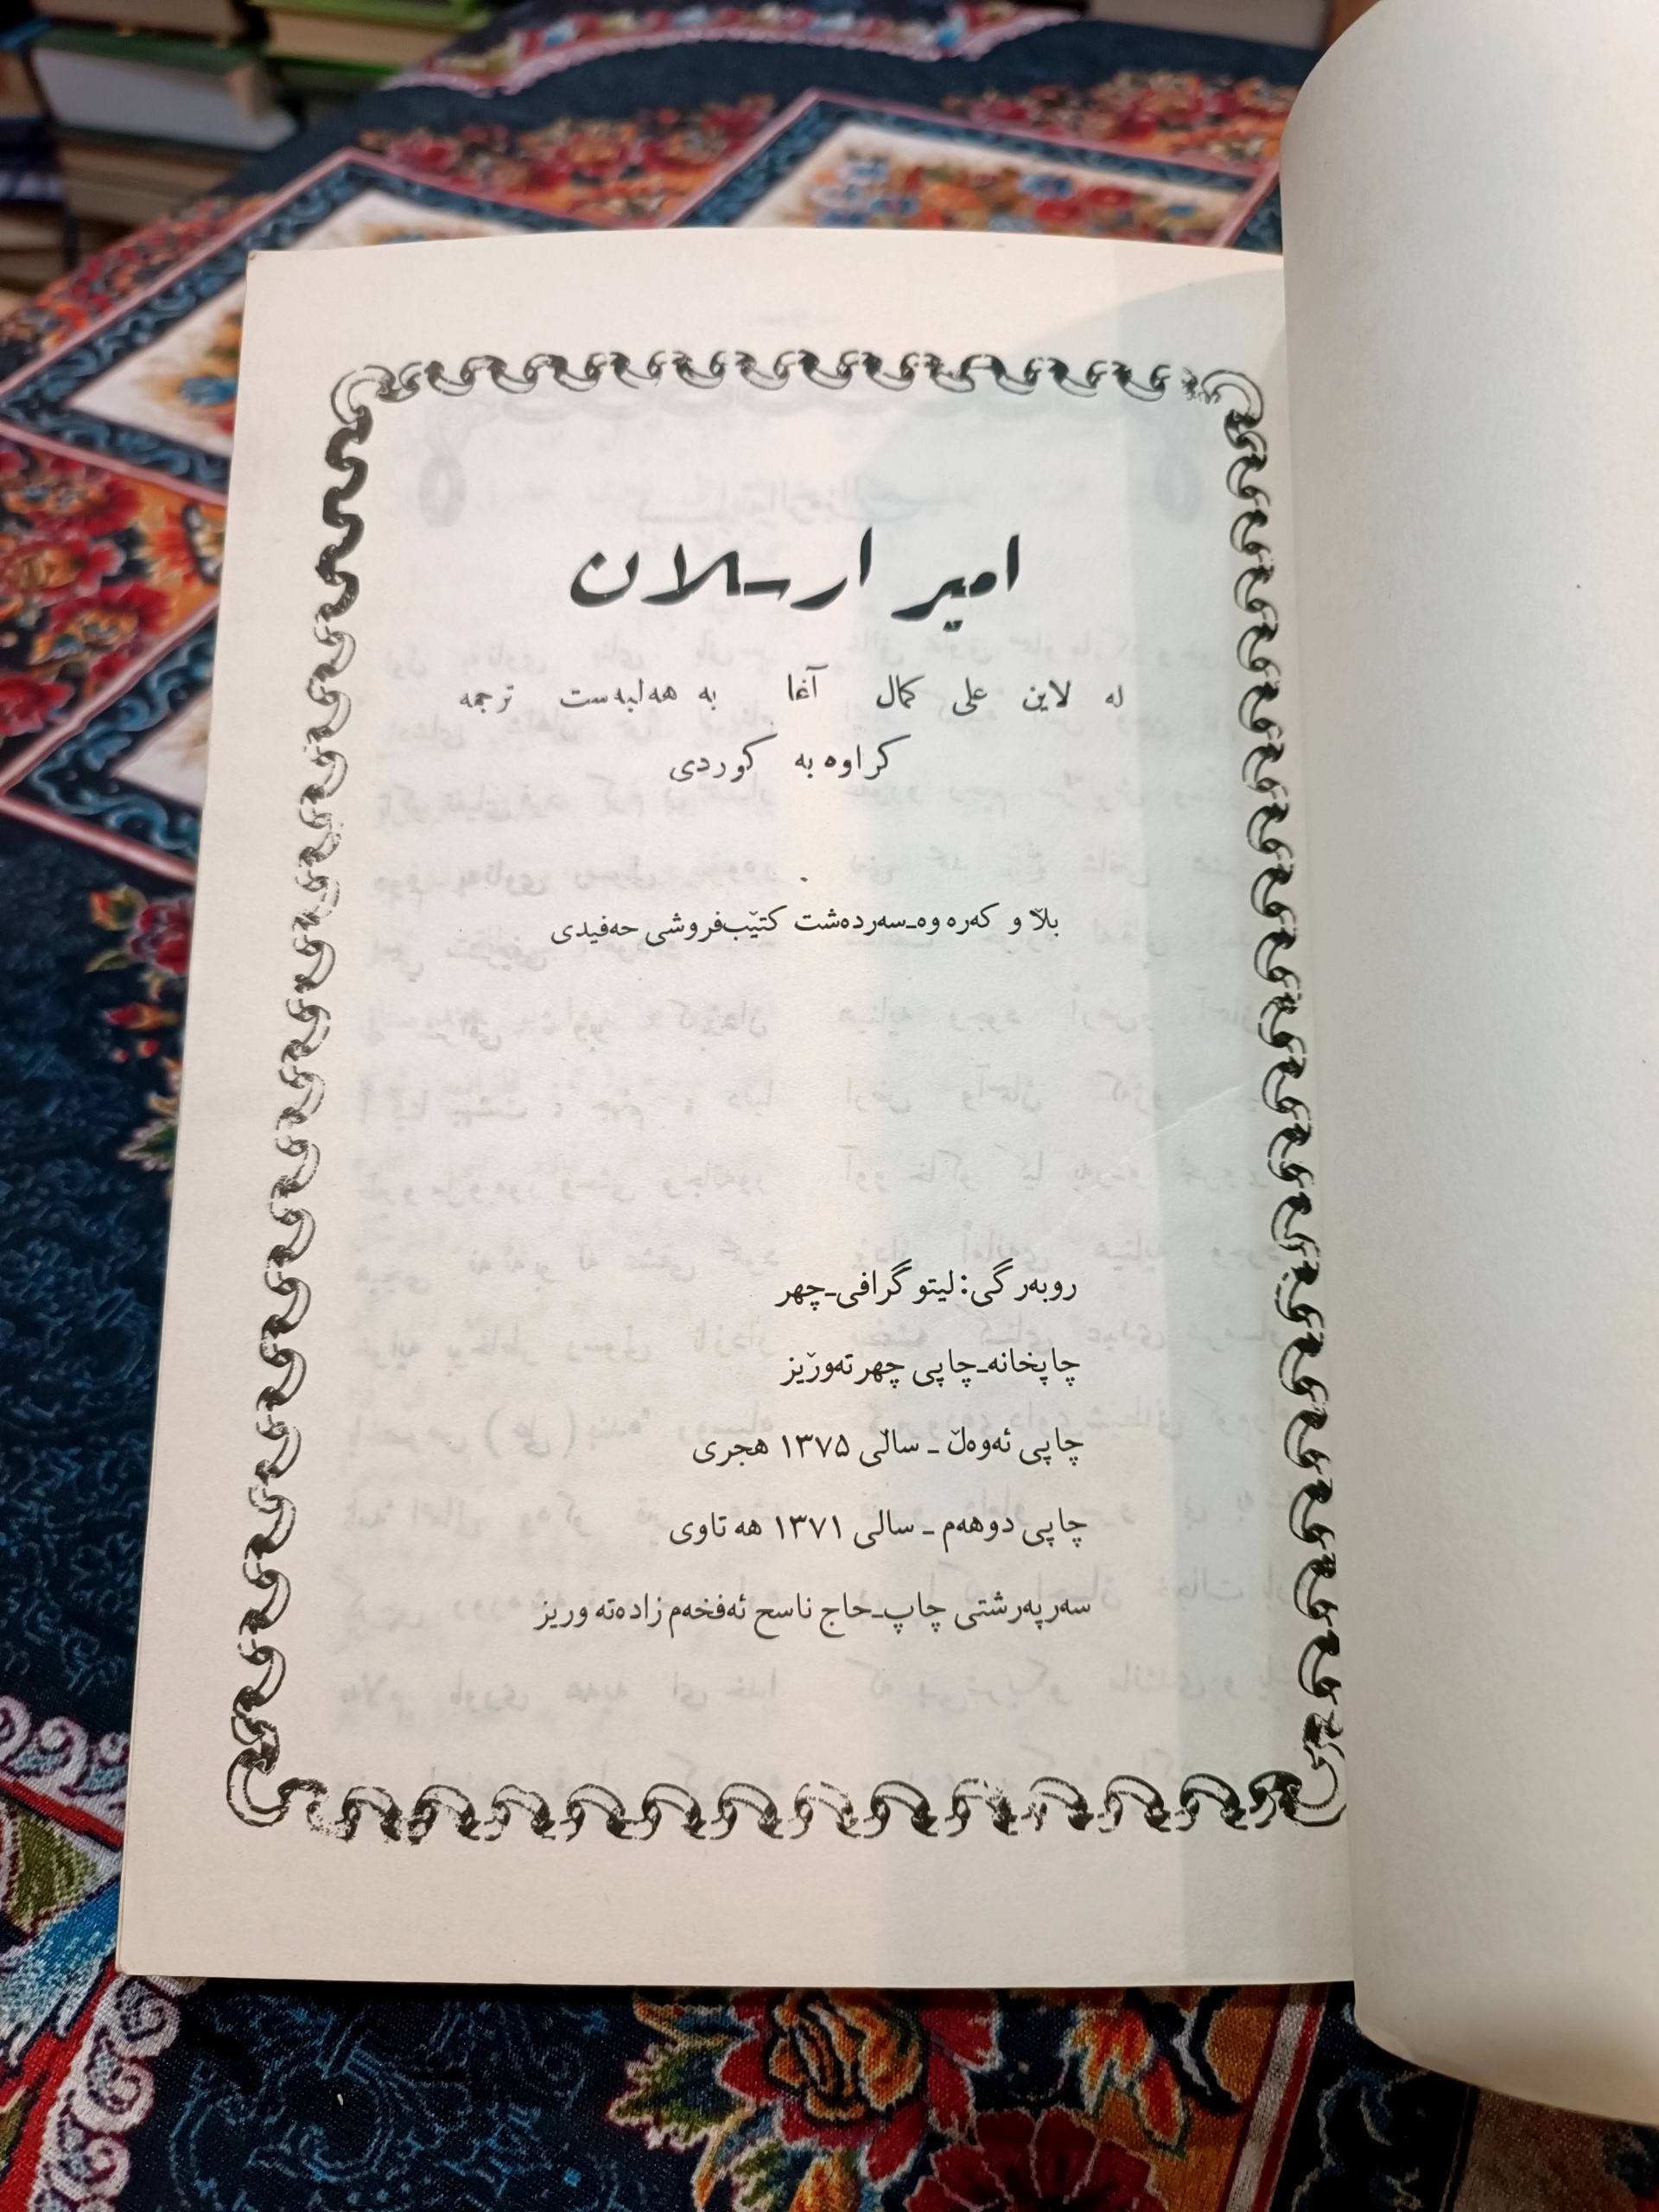 امیر ارسلان
له لاین علی کمال آغا به هه‌لبه‌ست ترجمه
کراوه به کوردی
بڵا و که‌ره وه‌ـسه‌رده‌شت کتێب‌فروشی حه‌فیدی
روبه‌رگی: لیتوگرافی‌ـچهر
چاپخانه‌ـچاپی چهر ته‌وڕیز
چاپی ئه‌وه‌ڵ ـ ساڵی ۱۳۷۵ هجری
چاپی دوهه‌م ـ سالی ۱۳۷۱ هه‌تاوی
سه‌رپه‌رشتی چاپ‌ـحاج ناسح ئه‌فخه‌م زاده‌ته وریز